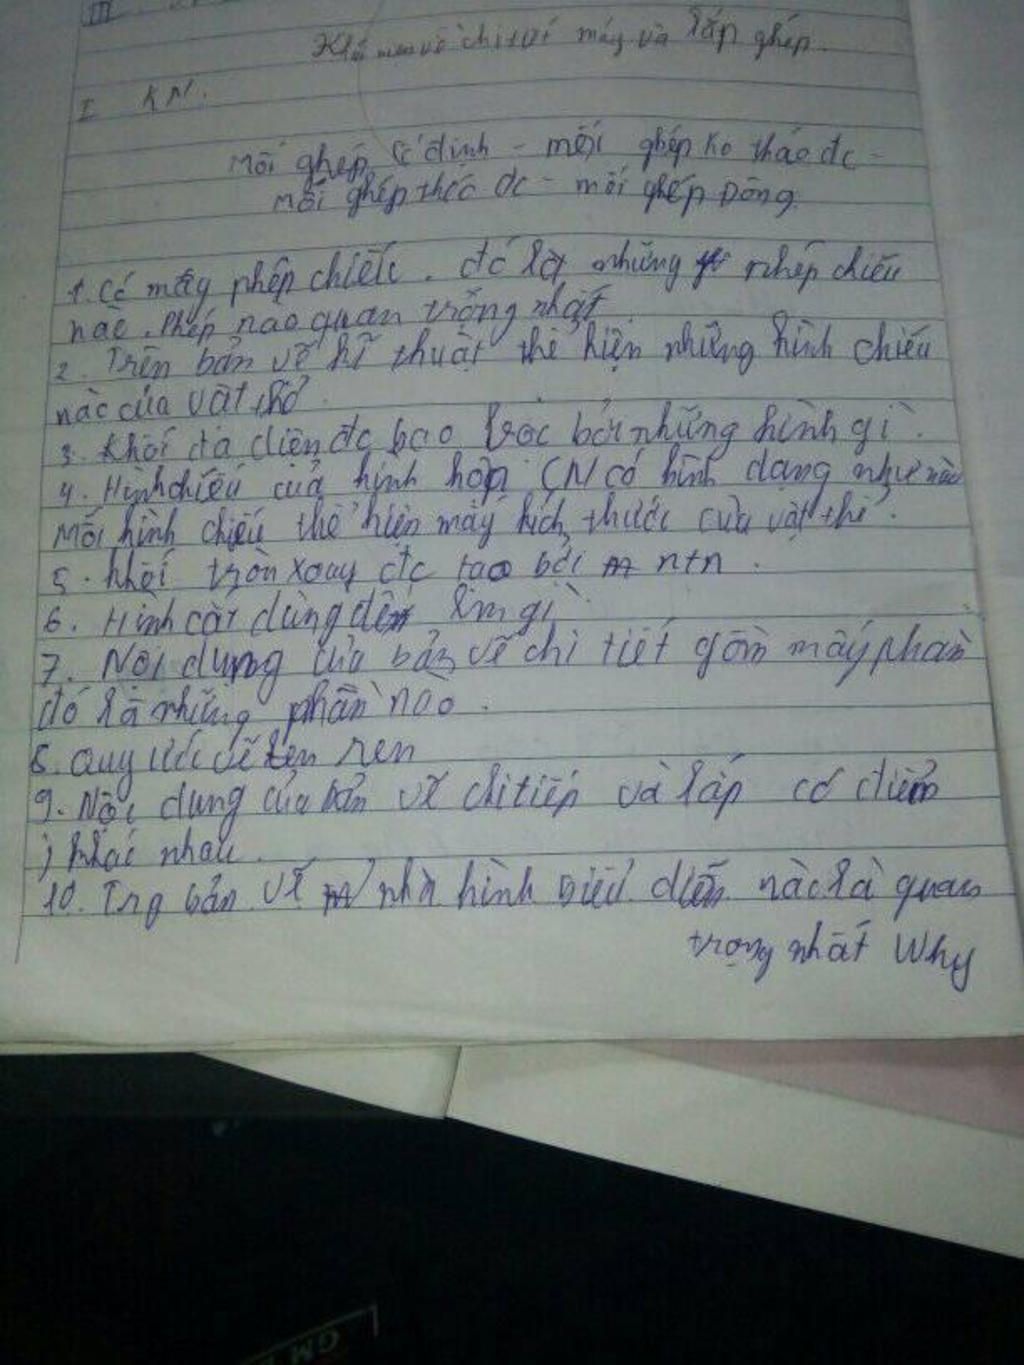 III
Khái niệm về chi tiết máy và lắp ghép.
I KN.
Mối ghép cố định - mối ghép ko tháo đc -
mối ghép tháo đc - mối ghép động.
1. Có mấy phép chiếu. đó là những phép chiếu
nào. Phép nào quan trọng nhất
2. Trên bản vẽ kĩ thuật thể hiện những hình chiếu
nào của vật thể.
3. Khối đa diện đc bao bọc bởi những hình gì.
4. Hình chiếu của hình hộp CN có hình dạng như nào
Mỗi hình chiếu thể hiện mấy kích thước của vật thể.
5. khối tròn xoay đc tạo bởi ntn.
6. Hình cắt dùng để làm gì
7. Nội dung của bản vẽ chi tiết gồm mấy phần
đó là những phần nào.
8. Quy ước vẽ ren
9. Nội dung của bản vẽ chi tiếp và lắp có điểm
j khác nhau.
10. Trg bản vẽ nhà hình biểu diễn nào là quan
trọng nhất Why
GM